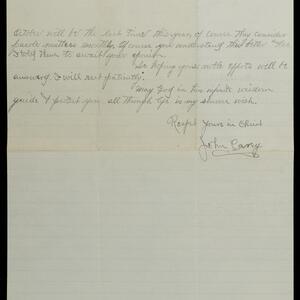 October will be the last time this year, of course they consider
sacred matters monthly, of course you understand this better
I told them to await your opinion.
So hoping your noble efforts will be
answered, I will wait patiently.
May God in his infinite wisdom
guide & protect you all through life is my sincere wish.
Respt Yours in Christ
John